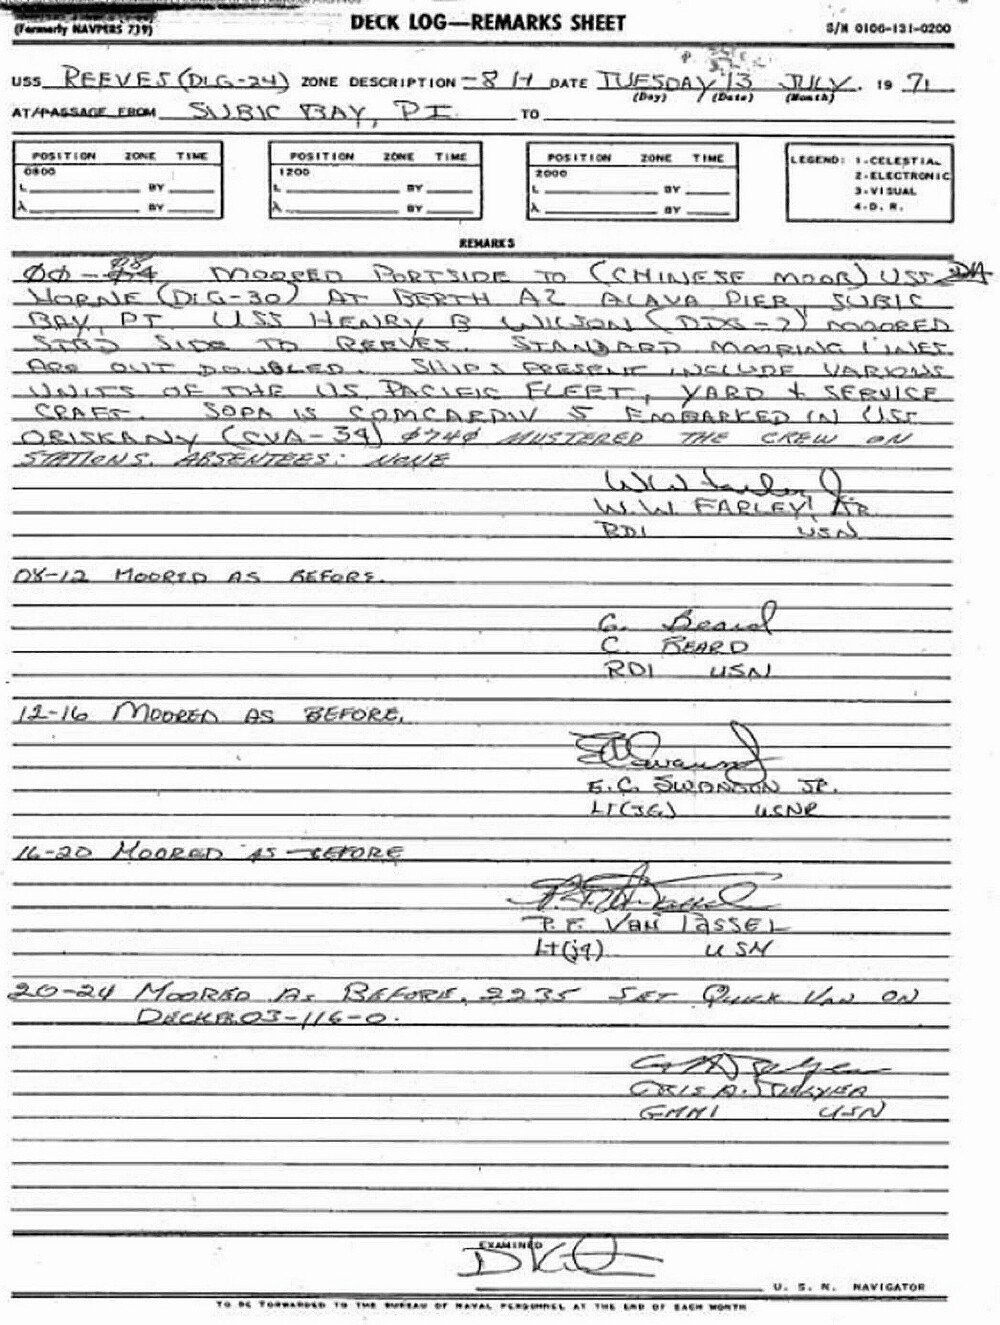 (Formerly NAVPERS 719)
DECK LOG—REMARKS SHEET
S/N 0106-131-0200
USS REEVES (DLG-24) ZONE DESCRIPTION -8 H DATE TUESDAY 13 JULY 19 71
(Day) (Date) (Month)
AT/PASSAGE FROM SUBIC BAY, PI TO
POSITION ZONE TIME
0800
L BY
λ BY
POSITION ZONE TIME
1200
L BY
λ BY
POSITION ZONE TIME
2000
L BY
λ BY
LEGEND: 1-CELESTIAL
2-ELECTRONIC
3-VISUAL
4-D. R.
REMARKS
00-04 08 MOORED PORTSIDE TO (CHINESE MOOR) USS
HORNE (DLG-30) AT BERTH A2 ALAVA PIER, SUBIC
BAY, PI. USS HENRY B WILSON (DDG-7) MOORED
STBD SIDE TO REEVES. STANDARD MOORING LINES
ARE OUT DOUBLED. SHIPS PRESENT INCLUDE VARIOUS
UNITS OF THE US PACIFIC FLEET, YARD + SERVICE
CRAFT. SOPA IS COMCARDIV 5 EMBARKED IN USS
ORISKANY (CVA-34) 0740 MUSTERED THE CREW ON
STATIONS. ABSENTEES: NONE
W.W. FARLEY, JR
RD1 USN
08-12 MOORED AS BEFORE.
C. Beard
C. BEARD
RD1 USN
12-16 MOORED AS BEFORE.
E C Swanson
E.C. SWANSON JR.
LT(JG) USNR
16-20 MOORED AS BEFORE
P.F. VAN TASSEL
Lt(jg) USN
20-24 MOORED AS BEFORE. 2235 SET QUICK VAN ON
DECK 03-116-0.
CRIS A.
GMM1 USN
EXAMINED
U. S. N. NAVIGATOR
TO BE FORWARDED TO THE BUREAU OF NAVAL PERSONNEL AT THE END OF EACH MONTH